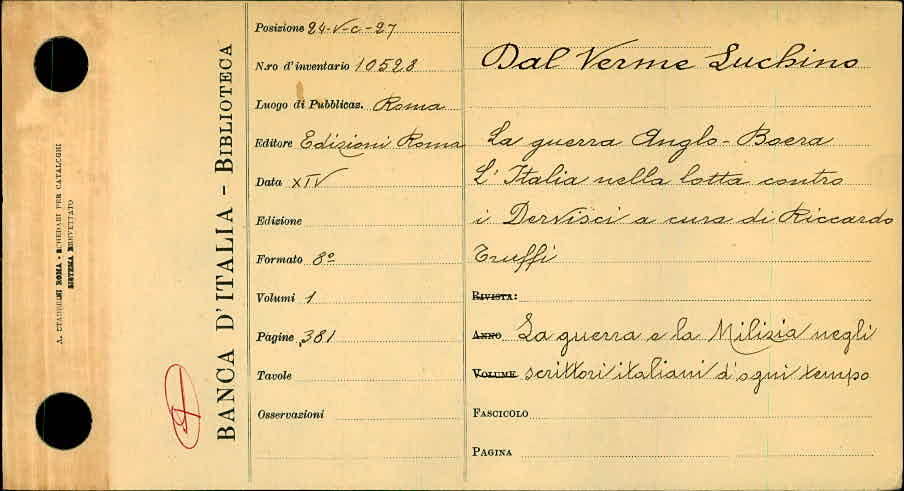 A. STADERINI ROMA - SCHEDARI PER CATALOGHI
SISTEMA BREVETTATO
BANCA D'ITALIA - BIBLIOTECA
Posizione 24-V-C-27
N.ro d'inventario 10528
Luogo di Pubblicaz. Roma
Editore Edizioni Roma
Data XIV
Edizione
Formato 8º
Volumi 1
Pagine 381
Tavole
Osservazioni
Dal Verme Luchino
La guerra Anglo-Boera
L'Italia nella lotta contro
i Dervisci a cura di Riccardo
Truffi
RIVISTA:
ANNO La guerra e la Milizia negli
VOLUME scrittori italiani d'ogni tempo
FASCICOLO
PAGINA